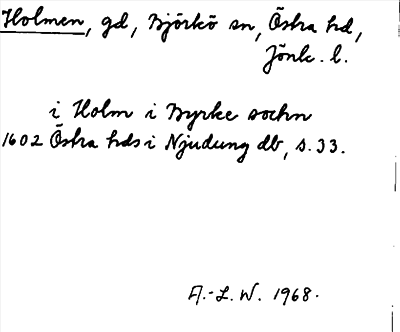 Holmen, gd, Björkö sn, Östra hd,
Jönk. l.
i Holm i Byrke sochn
1602 Östra hds i Njudung db, s. 33.
A.-L. W. 1968.